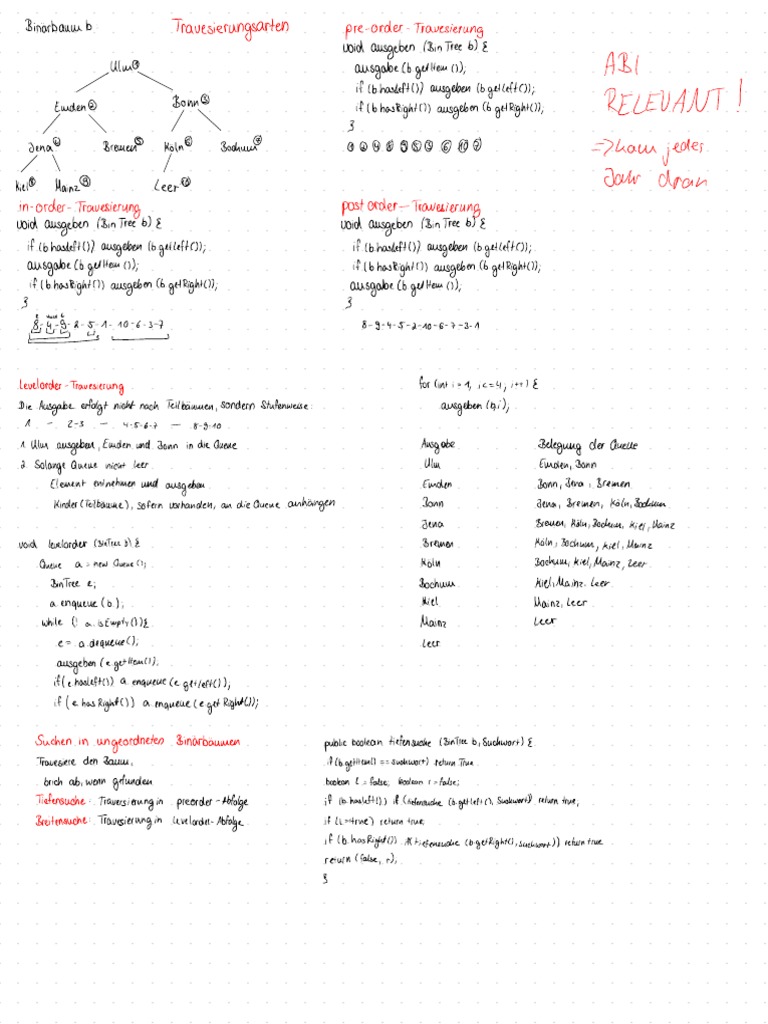 Binärbaum b
Travesierungsarten
Ulm ①
Emden ②
Bonn ③
Jena ④
Bremen ⑤
Köln ⑥
Bochum ⑦
Kiel ⑧
Mainz ⑨
Leer ⑩
pre-order-Travesierung
void ausgeben (Bin Tree b) {
ausgabe (b getItem ());
if (b hasLeft()) ausgeben (b getLeft());
if (b hasRight()) ausgeben (b getRight());
}
① ② ④ ⑧ ⑨ ⑤ ③ ⑥ ⑩ ⑦
ABI
RELEVANT!
=> kam jedes
Jahr dran
in-order-Travesierung
void ausgeben (Bin Tree b) {
if (b hasLeft()) ausgeben (b getLeft());
ausgabe (b getItem ());
if (b hasRight()) ausgeben (b getRight());
}
8-4-9-2-5-1-10-6-3-7
post order-Travesierung
void ausgeben (Bin Tree b) {
if (b hasLeft()) ausgeben (b getLeft());
if (b hasRight()) ausgeben (b getRight());
ausgabe (b getItem ());
}
8-9-4-5-2-10-6-7-3-1
Levelorder-Travesierung
Die Ausgabe erfolgt nicht nach Teilbäumen, sondern Stufenweise:
1 - 2-3 - 4-5-6-7 - 8-9-10
1. Ulm ausgeben, Emden und Bonn in die Queue
2. Solange Queue nicht leer
Element entnehmen und ausgeben
Kinder (Teilbäume), sofern vorhanden, an die Queue anhängen
for (int i = 1, i<=4; i++) {
ausgeben (b,i);
Ausgabe Belegung der Queue
Ulm Emden, Bonn
Emden Bonn, Jena, Bremen
Bonn Jena, Bremen, Köln, Bochum
Jena Bremen, Köln, Bochum, Kiel, Mainz
Bremen Köln, Bochum, Kiel, Mainz
Köln Bochum, Kiel, Mainz, Leer
Bochum Kiel, Mainz, Leer
Kiel Mainz, Leer
Mainz Leer
Leer
void levelorder (BinTree b) {
Queue a = new Queue();
BinTree e;
a enqueue (b);
while (! a. isEmpty ()) {
e = a dequeue ();
ausgeben (e. getItem());
if (e hasLeft()) a enqueue (e getLeft());
if (e hasRight()) a enqueue (e getRight());
Suchen in ungeordneten Binärbäumen
Travesiere den Baum,
brich ab, wenn gefunden
Tiefensuche: Traversierung in preorder-Abfolge
Breitensuche: Travesierung in levelorder-Abfolge
public boolean tiefensuche (BinTree b, Suchwort) {
if (b.getItem() == suchwort) return True
boolean l = false; boolean r = false;
if (b.hasLeft()) if (tiefensuche (b.getLeft(), Suchwort)) return true;
if (l = true) return true;
if (b.hasRight()) if (tiefensuche (b.getRight(), suchwort)) return true
return (false, r),
}